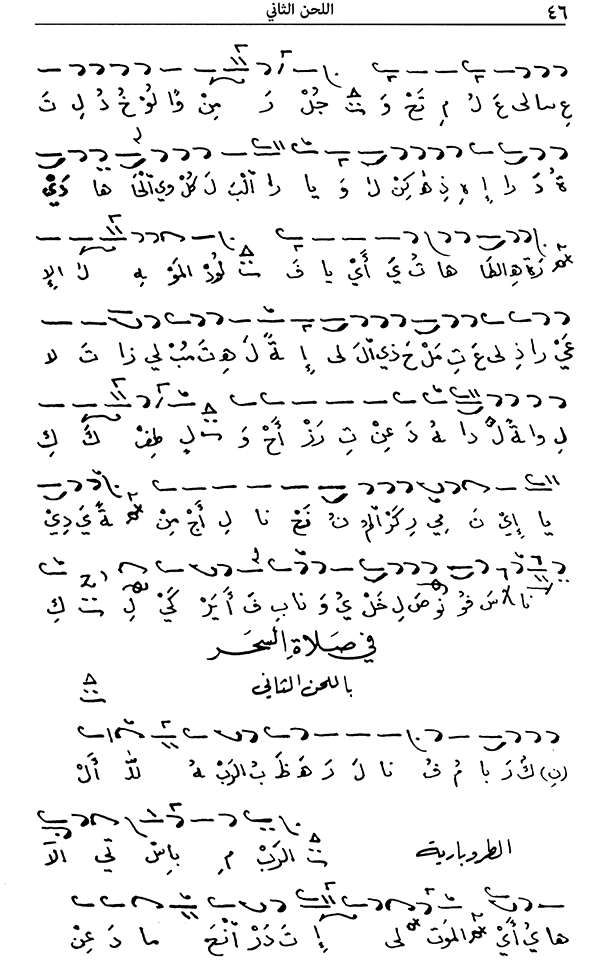 ٤٦ اللحن الثاني
عِ سالى عَ لُ مِ تَحْ وَ تْ جُلْ رَ مِنْ والُوْخُ دُ لِ تَ
ةُ دَ را إِ هِ ذِ هٰ كِنْ لٰ وَ يا را الْبَ لَ كُلْ وي الْحَا ها دَيْ
رَةَ هِ الطَا ها تُ يَ أَيْ يا فَ تْ لُودْ المَوْ بِهِ لٰ الإِ
غَيْ را ذِ لى عَ تِ مَلْ حَ ذي الْ لى إِ ةً لَ هِ تَ مُبْ لي زا تَ لا
لِ وا ةً لَ دا هُ دَ عِنْ تِ رَزْ أَحْ وَ لِ طِفْ كَ كِ
يا إِيْ تَ مِي رِكْزْ الْمُ نُ نَحْ نا لِ أَجْ مِنْ ةً يَ دِيْ
نا سَ فُوْ نُ صَ لِ خَلْ يُ وَ نا بِ فَ أَ يَرْ كَيْ لِ تْ كِ
في صَلاةِ السَحَر
باللحن الثاني
(نِ) كُ رَ با مُ فُ نا لَ رَ هَ ظَ بُ الرَبْ هُ للَّا أَلْ
الطروبارية تْ الرَبْ مِ باِسْ تي الآ
ها يُ أَيْ المَوت لى إِ تَ دَرْ انْحَ ما دَ عِنْ